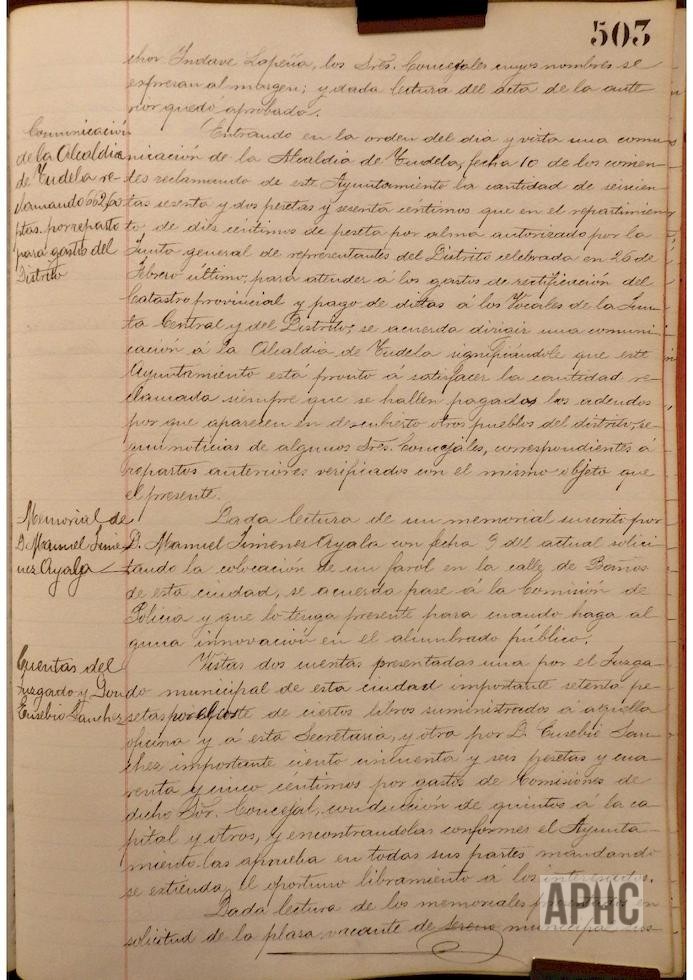 503
chor Indave Lapeña, los Sres. Concejales cuyos nombres se
espresan al margen; y dada lectura del acta de la ante
rior quedó aprobada.
Comunicación
de la Alcaldia
de Tudela re-
clamando 662,60
ptas. por reparto
para gastos del
Distrito
Entrando en la orden del dia y vista una comu
nicación de la Alcaldia de Tudela, fecha 10 de los corrien-
tes reclamando de este Ayuntamiento la cantidad de seiscien-
tas sesenta y dos pesetas y sesenta céntimos que en el repartimien
to, de diez céntimos de peseta por alma autorizado por la
Junta general de representantes del Distrito celebrada en 26 de
Febrero último, para atender á los gastos de rectificación del
Catastro provincial y pago de dietas á los Vocales de la Jun-
ta Central y del Distrito, se acuerda dirigir una comuni-
cación á la Alcaldia de Tudela significándole que este
Ayuntamiento está pronto á satisfacer la cantidad re-
clamada siempre que se hallen pagados los adeudos
por que aparecen en descubierto otros pueblos del distrito, se-
gun noticias de algunos Sres. Concejales, correspondientes á
repartos anteriores verificados con el mismo objeto que
el presente.
Memorial de
D. Manuel Jimé
nez Ayala
Dada lectura de un memorial suscrito por
D. Manuel Jimenez Ayala con fecha 3 del actual solici
tando la colocación de un farol en la calle de Baños
de esta ciudad, se acuerda pase á la Comisión de
Policia y que lo tenga presente para cuando haga al
guna innovación en el alumbrado público.
Cuentas del
Juzgado y Don
Eusebio Sanchez
Vistas dos cuentas presentadas una por el Juzga-
do municipal de esta ciudad importante setenta pe-
setas por el coste de ciertos libros suministrados á aquella
oficina y á esta Secretaria, y otra por D. Eusebio San-
chez importante ciento cincuenta y seis pesetas y cua-
renta y cinco céntimos por gastos de Comisiones de
dicho Sor. Concejal, conducción de quintos á la ca
pital y otros, y encontrandolas conformes el Ayunta-
miento las aprueba en todas sus partes mandando
se extienda el oportuno libramiento a los interesados.
Dada lectura de los memoriales presentados en
solicitud de la plaza vacante de sereno municipal
APHC